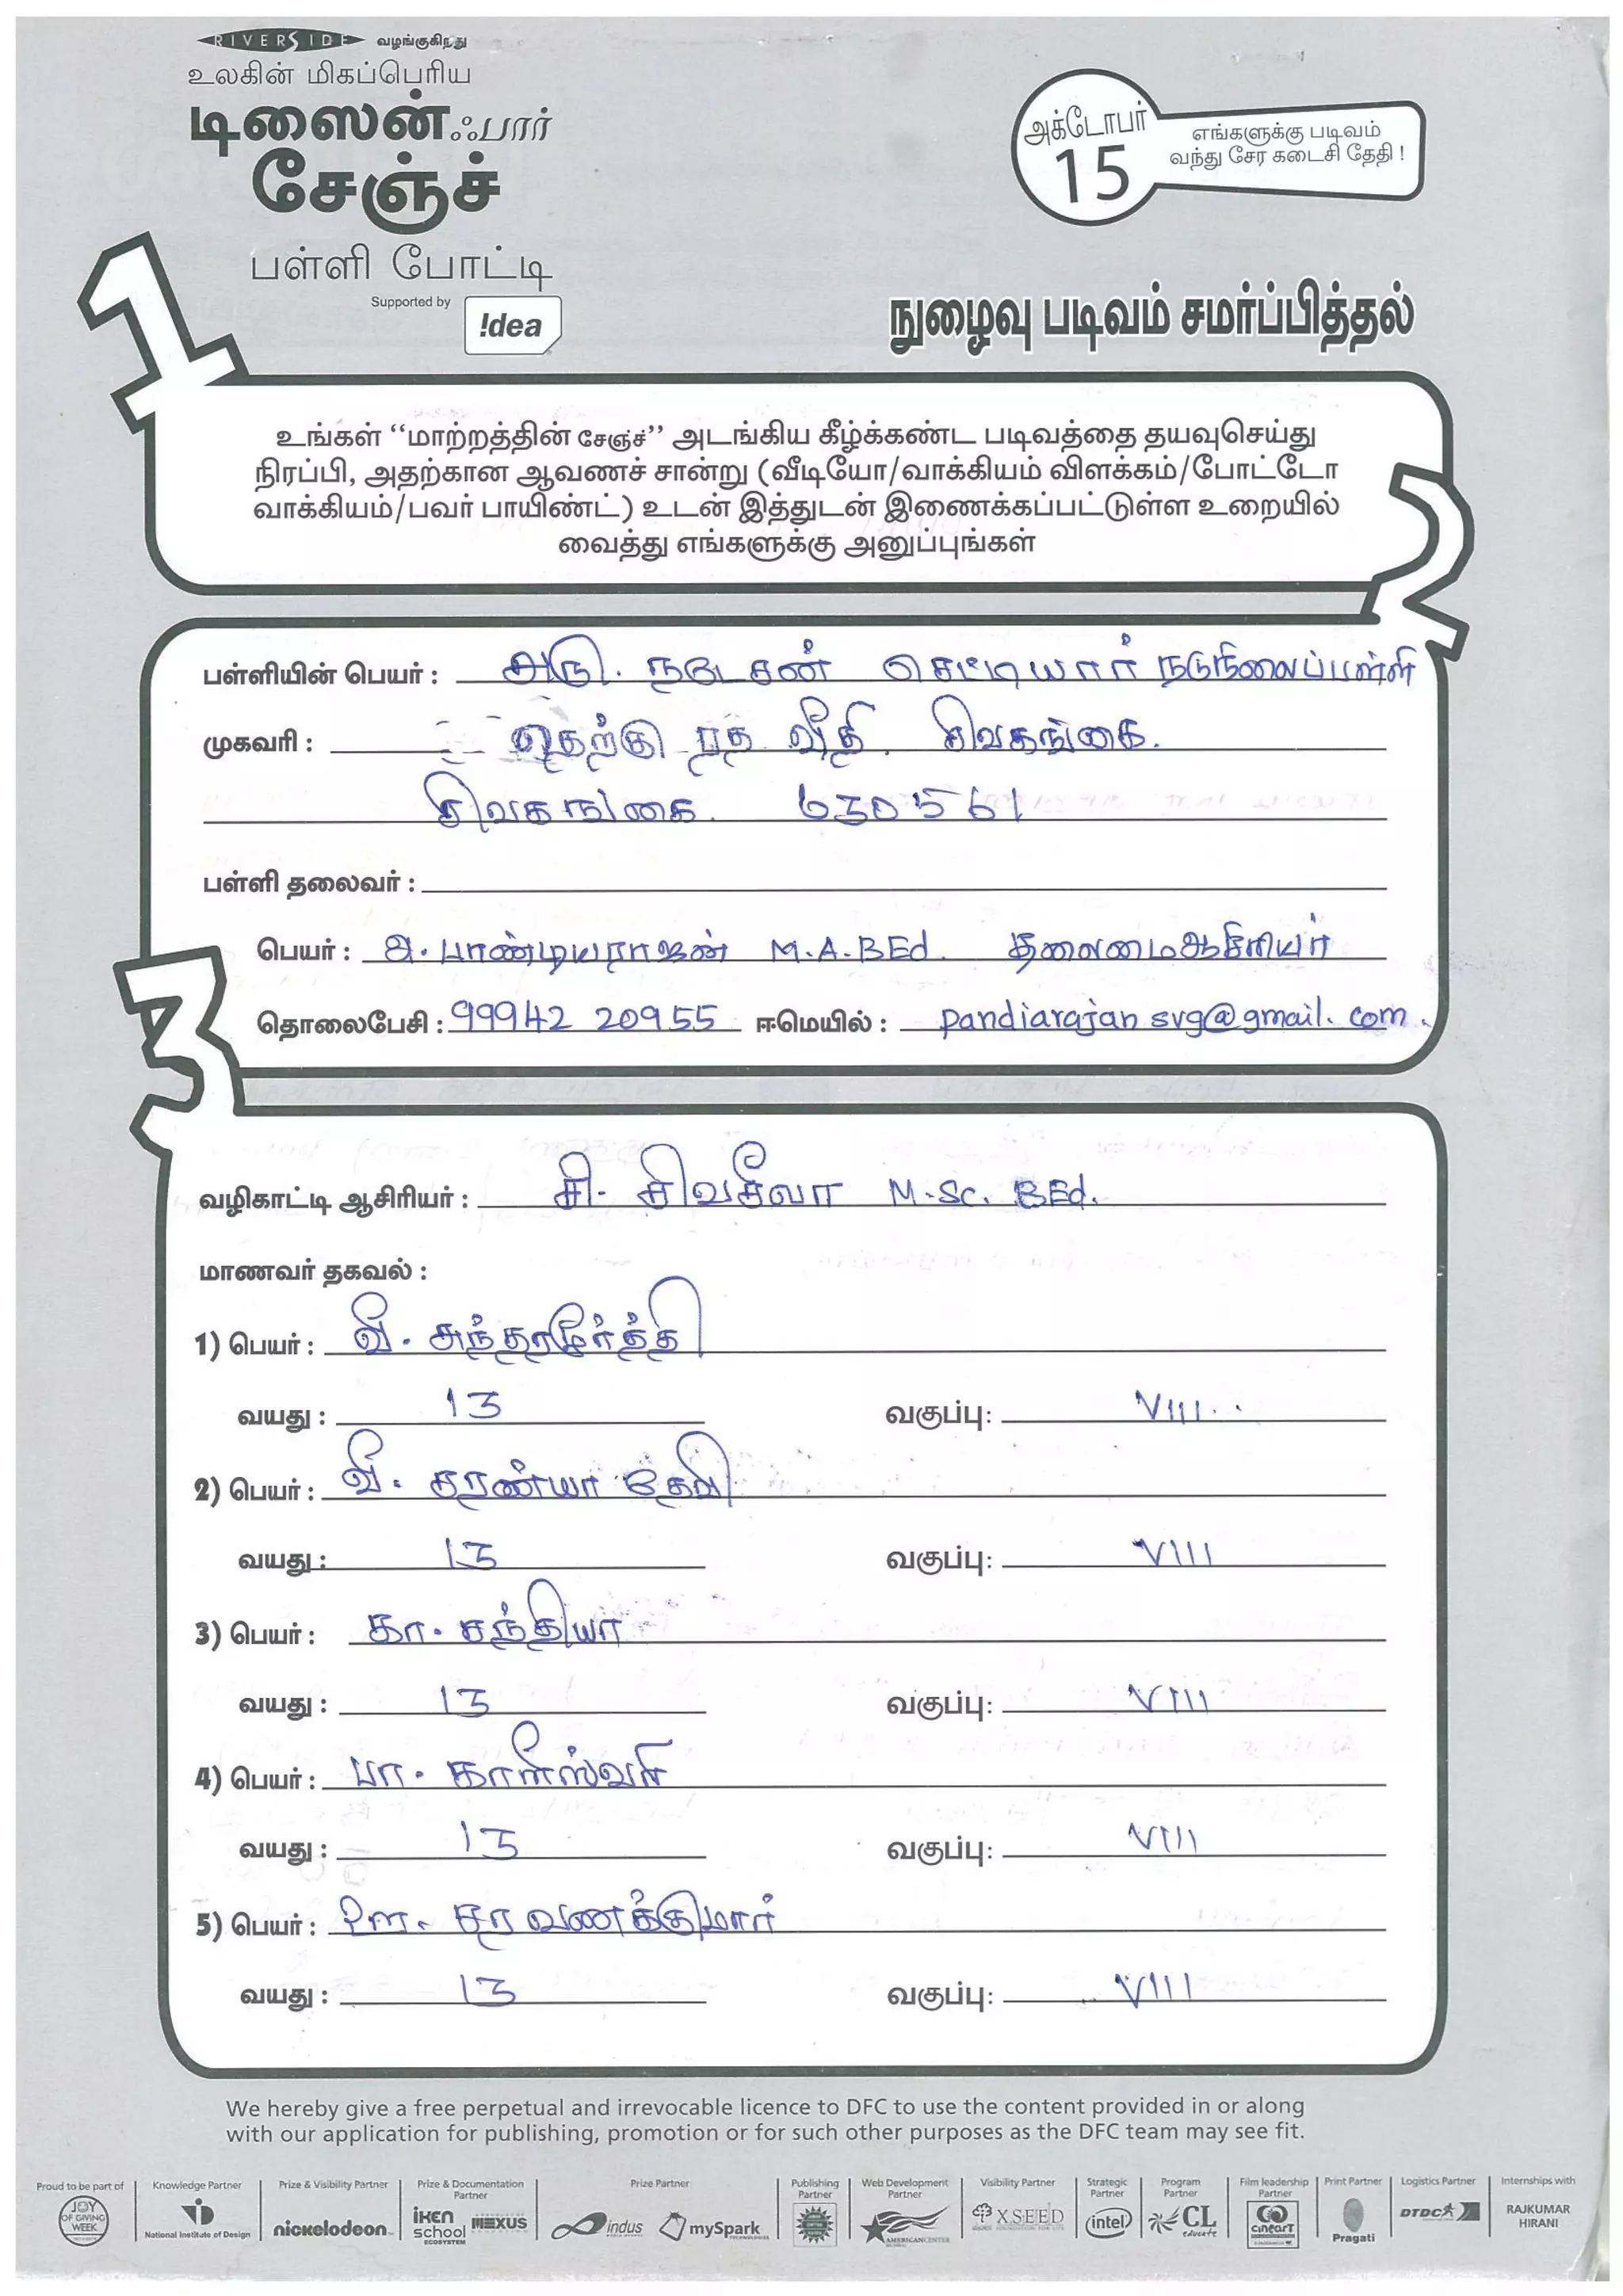 RIVERSIDE வழங்குகிறது
உலகின் மிகப்பெரிய
டிஸைன் ஃபார்
சேஞ்ச்
பள்ளி போட்டி
Supported by !dea
அக்டோபர்
15
எங்களுக்கு படிவம்
வந்து சேர கடைசி தேதி !
நுழைவு படிவம் சமர்ப்பித்தல்
1
உங்கள் “மாற்றத்தின் சேஞ்ச்” அடங்கிய கீழ்க்கண்ட படிவத்தை தயவுசெய்து
நிரப்பி, அதற்கான ஆவணச் சான்று (வீடியோ/வாக்கியம் விளக்கம்/போட்டோ
வாக்கியம்/பவர் பாயிண்ட்) உடன் இத்துடன் இணைக்கப்பட்டுள்ள உறையில்
வைத்து எங்களுக்கு அனுப்புங்கள்
2
பள்ளியின் பெயர் : அரு. நடேசன் செட்டியார் நடுநிலைப்பள்ளி
முகவரி : தெற்கு ரத வீதி. சிவகங்கை.
சிவகங்கை. 630561
பள்ளி தலைவர் :
பெயர் : அ. பாண்டியராஜன் M.A.BEd. தலைமைஆசிரியர்
தொலைபேசி : 99942 20955 ஈமெயில் : pandiarajan svg@gmail.com.
3
வழிகாட்டி ஆசிரியர் : சி. சிவசீலா M.Sc. BEd.
மாணவர் தகவல் :
1) பெயர் : வீ. சுந்தரமூர்த்தி
வயது : 13 வகுப்பு: VIII
2) பெயர் : வீ. சரண்யா தேவி
வயது : 13 வகுப்பு: VIII
3) பெயர் : கா. சந்தியா
வயது : 13 வகுப்பு: VIII
4) பெயர் : பா. காளீஸ்வரி
வயது : 13 வகுப்பு: VIII
5) பெயர் : சரவணக்குமார்
வயது : 13 வகுப்பு: VIII
We hereby give a free perpetual and irrevocable licence to DFC to use the content provided in or along
with our application for publishing, promotion or for such other purposes as the DFC team may see fit.
Proud to be part of Knowledge Partner Prize & Visibility Partner Prize & Documentation Partner Prize Partner Publishing Partner Web Development Partner Visibility Partner Strategic Partner Program Partner Film leadership Partner Print Partner Logistics Partner Internships with
JOY OF GIVING WEEK National Institute of Design nickelodeon iken school ECOSYSTEM MEXUS indus mySpark AMERICANCENTER XSEED intel CL educate CINEART Pragati DTDC RAJKUMAR HIRANI